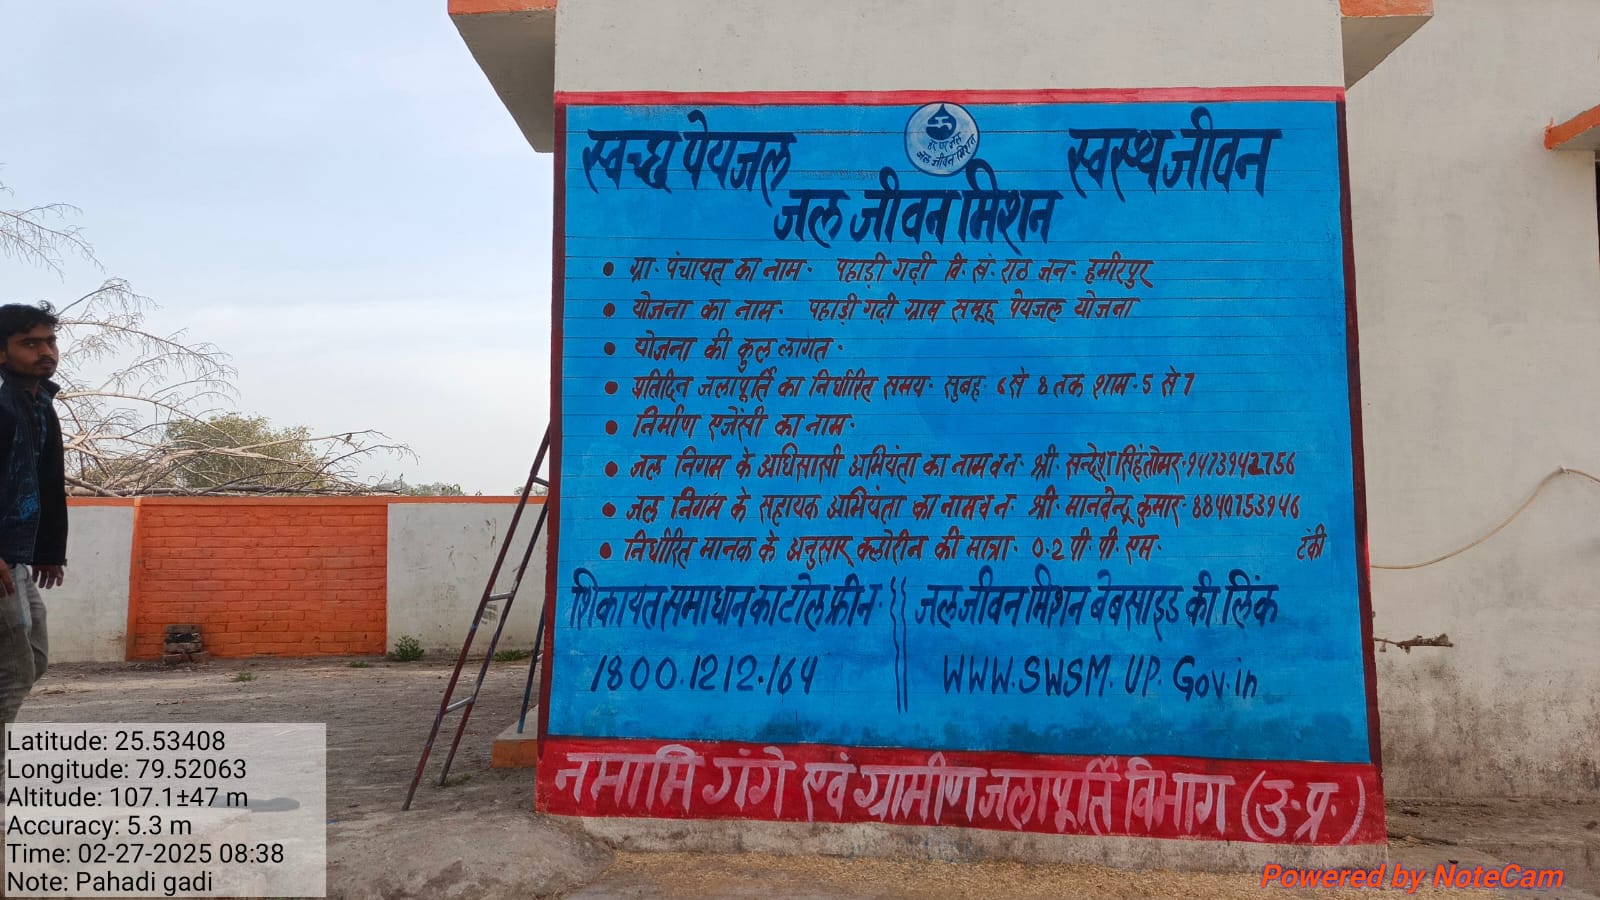 स्वच्छ पेयजल
हर घर जल
जल जीवन मिशन
स्वस्थ जीवन
जल जीवन मिशन
• ग्रा. पंचायत का नाम. पहाड़ी गढ़ी वि. खं. राठ जन. हमीरपुर
• योजना का नाम. पहाड़ी गढ़ी ग्राम समूह पेयजल योजना
• योजना की कुल लागत.
• प्रतिदिन जलापूर्ति का निर्धारित समय. सुबह. 6 से 8 तक शाम. 5 से 7
• निर्माण एजेंसी का नाम.
• जल निगम के अधिसासी अभियंता का नाम व न. श्री. सन्देश सिंह तोमर. 9473942756
• जल निगम के सहायक अभियंता का नाम व न. श्री. मानवेन्द्र कुमार. 8840753946
• निर्धारित मानक के अनुसार क्लोरीन की मात्रा. 0.2 पी. पी. एम. टंकी
शिकायत समाधान का टोल फ्री न.
1800.1212.164
जल जीवन मिशन बेबसाइड की लिंक
WWW.SWSM.UP.Gov.in
नमामि गंगे एवं ग्रामीण जलापूर्ति विभाग (उ.प्र.)
Latitude: 25.53408
Longitude: 79.52063
Altitude: 107.1±47 m
Accuracy: 5.3 m
Time: 02-27-2025 08:38
Note: Pahadi gadi
Powered by NoteCam